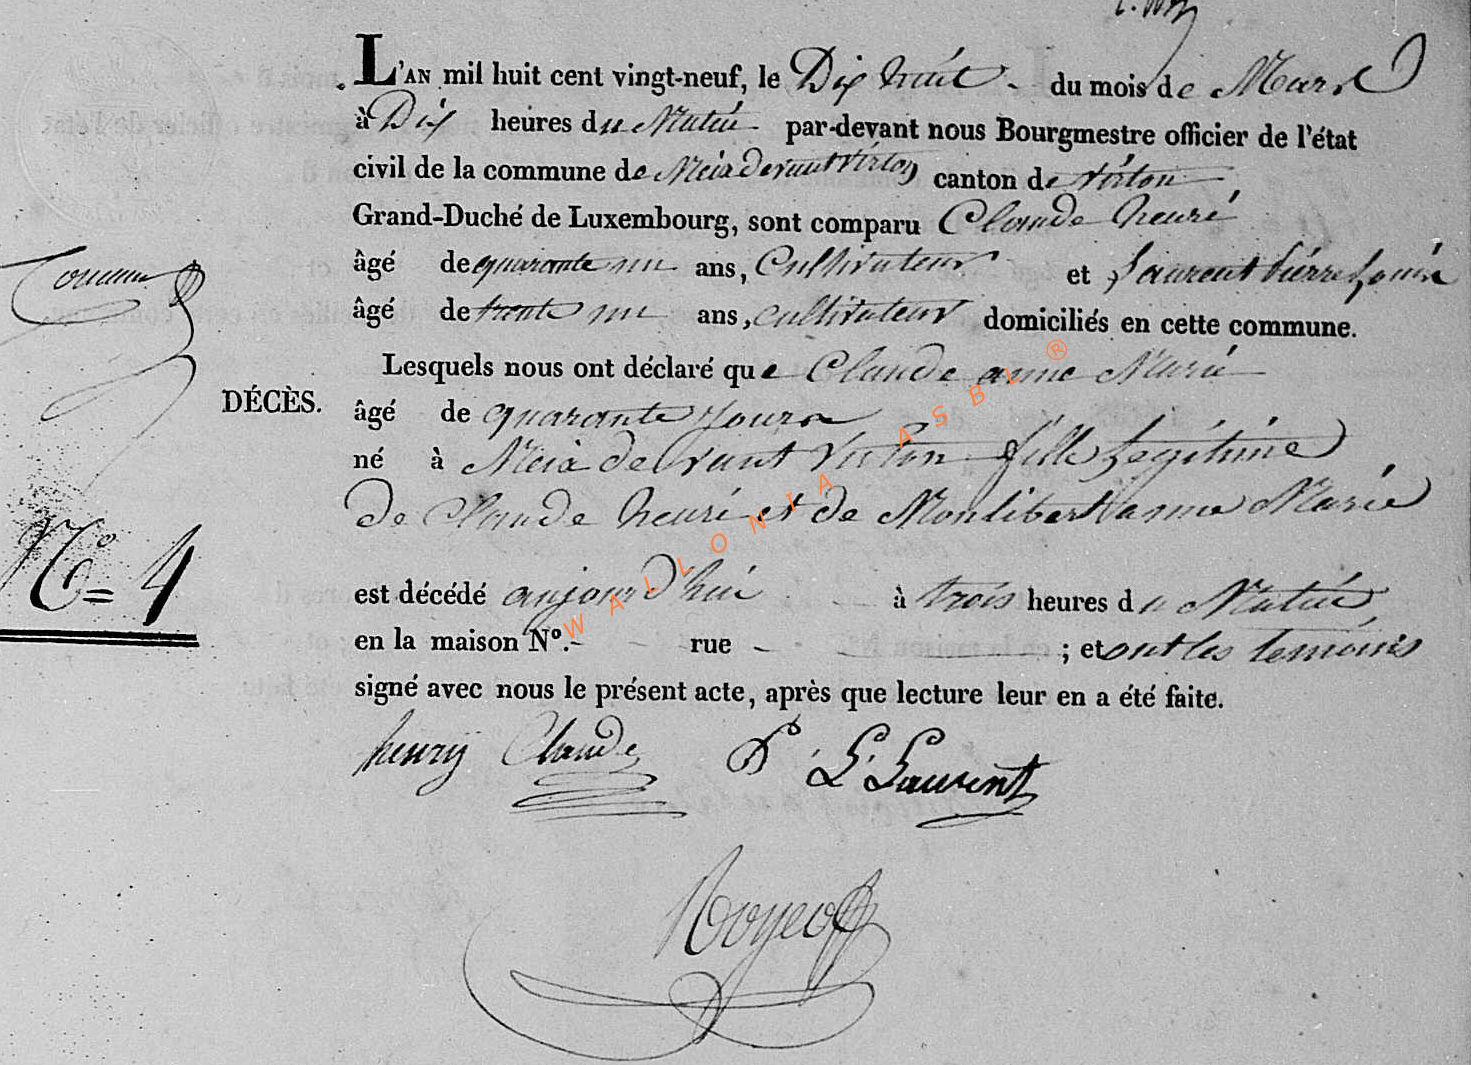 L'AN mil huit cent vingt-neuf, le Dix huit - du mois de Mars
à Dix heures du Matin par-devant nous Bourgmestre officier de l'état
civil de la commune de Meix devant Virton canton de Virton,
Grand-Duché de Luxembourg, sont comparu Claude henri
âgé de quarante un ans, Cultivateur et Laurent Pierre Louis
âgé de trente un ans, cultivateur domiciliés en cette commune.
Lesquels nous ont déclaré que Claude anne Marie
DÉCÈS.
âgé de quarante jours
né à Meix devant Virton fille Legitime
de Claude henri et de Monlibert anne Marie
No= 4
est décédé aujourd'hui à trois heures du Matin
en la maison No.- rue - ; et ont les temoins
signé avec nous le présent acte, après que lecture leur en a été faite.
henry Claude P. L. Laurent
WALLONIA ASBL ®